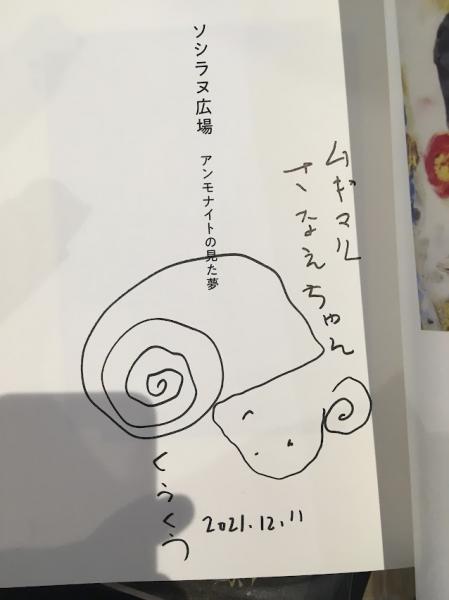 ソシラヌ広場　アンモナイトの見た夢
ムギマル
さなえちゃん
くうくう
2021.12.11